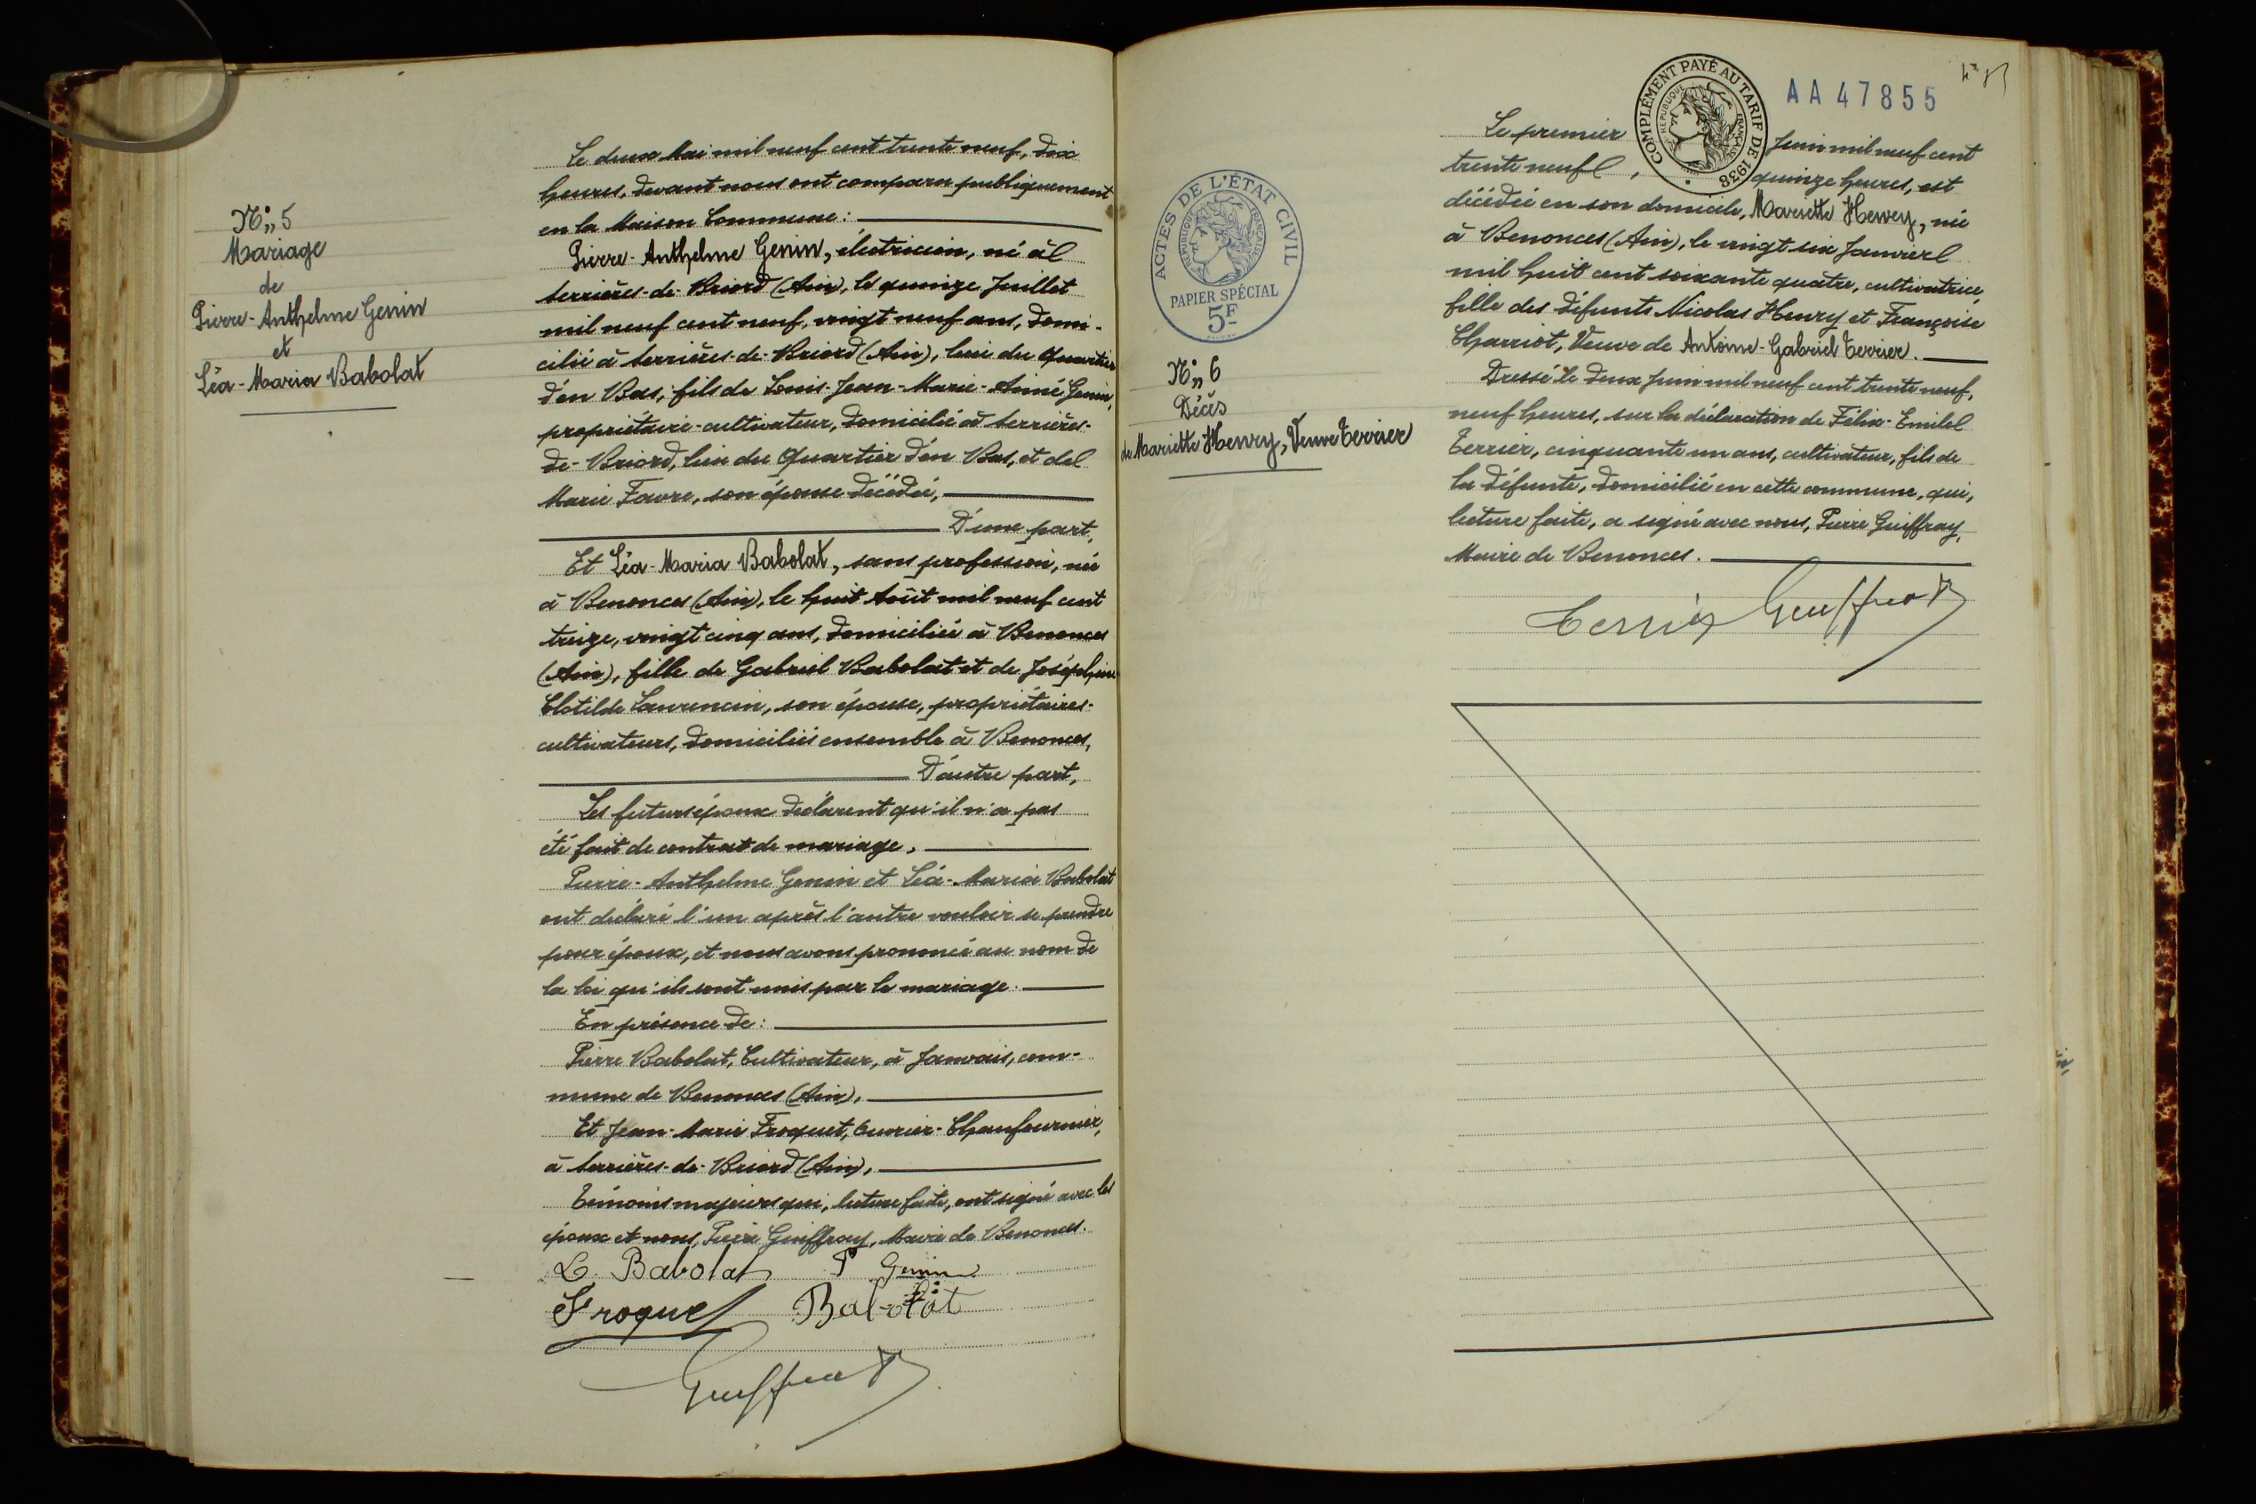 N° 5
Mariage
de
Pierre-Anthelme Genin
et
Léa-Maria Babolat
Le deux Mai mil neuf cent trente neuf, dix
heures, devant nous ont comparu publiquement
en la Maison Commune :
Pierre-Anthelme Genin, électricien, né à
Serrières-de-Briord (Ain), le quinze Juillet
mil neuf cent neuf, vingt neuf ans, domi-
cilié à Serrières-de-Briord (Ain), lieu du Quartier
d'en Bas, fils de Louis-Jean-Marie-Aimé Genin,
propriétaire-cultivateur, domicilié à Serrières-
de-Briord, lieu du Quartier d'en Bas, et de
Marie Favre, son épouse décédée,
D'une part,
Et Léa-Maria Babolat, sans profession, née
à Benonces (Ain), le huit Août mil neuf cent
treize, vingt cinq ans, domiciliée à Benonces
(Ain), fille de Gabriel Babolat et de Joséphine
Clotilde Laurencin, son épouse, propriétaires-
cultivateurs, domiciliés ensemble à Benonces,
D'autre part,
Les futurs époux déclarent qu'il n'a pas
été fait de contrat de mariage,
Pierre-Anthelme Genin et Léa-Maria Babolat
ont déclaré l'un après l'autre vouloir se prendre
pour époux, et nous avons prononcé au nom de
la loi qu'ils sont unis par le mariage.
En présence de :
Pierre Babolat, Cultivateur, à Janvais, com-
mune de Benonces (Ain),
Et Jean-Marie Froquet, Ouvrier-Chaufournier,
à Serrières-de-Briord (Ain),
Témoins majeurs qui, lecture faite, ont signé avec les
époux et nous, Pierre Guiffray, Maire de Benonces.
L. Babolat P Genin
Froquet Babolat
Guiffray
ACTES DE L'ÉTAT CIVIL
RÉPUBLIQUE FRANÇAISE
PAPIER SPÉCIAL
5F
N° 6
Décès
de Mariette Henry, Veuve Terrier
COMPLÉMENT PAYÉ AU TARIF DE 1938
RÉPUBLIQUE FRANÇAISE
AA 47855
Le premier Juin mil neuf cent
trente neuf, quinze heures, est
décédée en son domicile, Mariette Henry, née
à Benonces (Ain), le vingt six Janvier
mil huit cent soixante quatre, cultivatrice,
fille des défunts Nicolas Henry et Françoise
Charriot, Veuve de Antoine-Gabriel Terrier.
Dressé le deux Juin mil neuf cent trente neuf,
neuf heures, sur la déclaration de Félix-Emile
Terrier, cinquante un ans, cultivateur, fils de
la défunte, domicilié en cette commune, qui,
lecture faite, a signé avec nous, Pierre Guiffray,
Maire de Benonces.
Terrier Guiffray